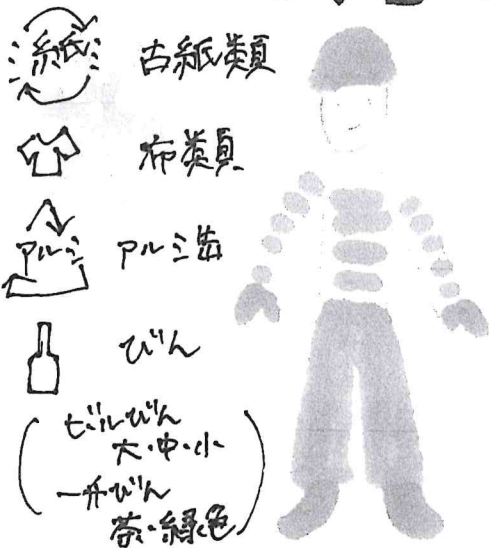 紙
古紙類
布類
アルミ
アルミ缶
びん
(ビールびん
大・中・小
一升びん
茶・緑色)